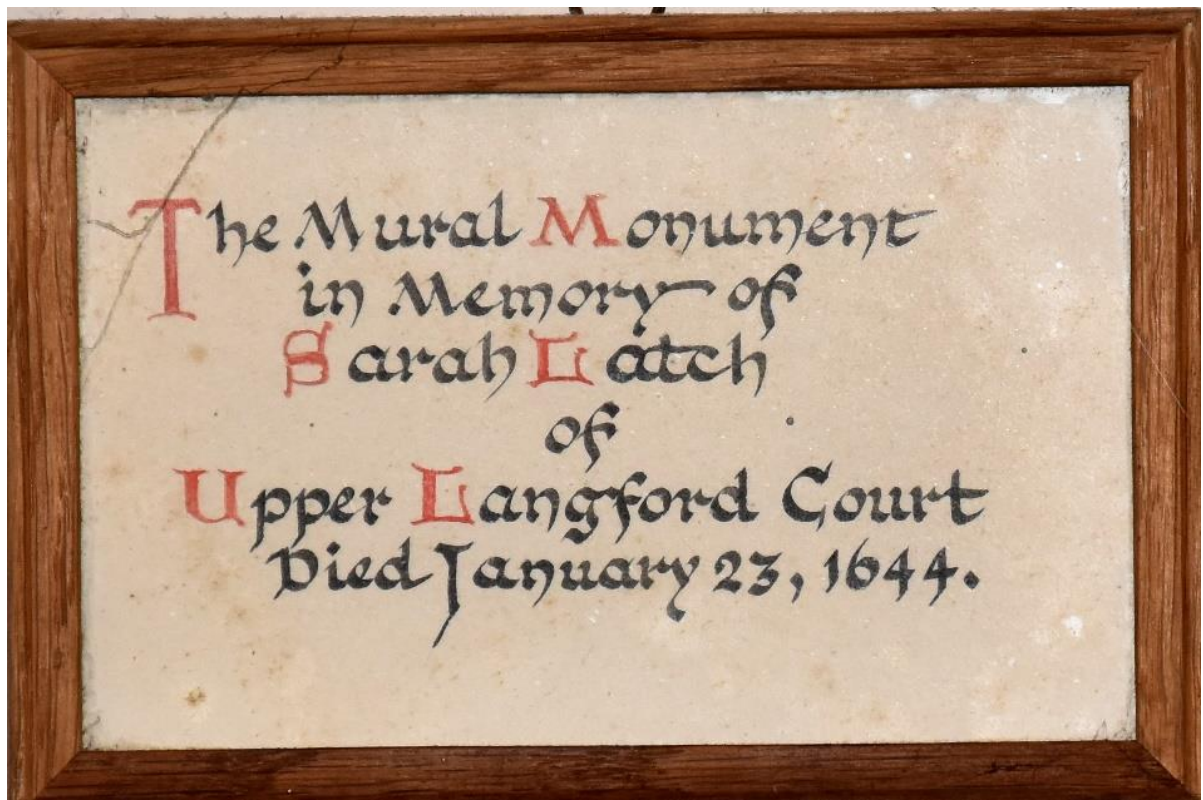 The Mural Monument
in Memory of
Sarah Latch
of
Upper Langford Court
Died January 23, 1644.